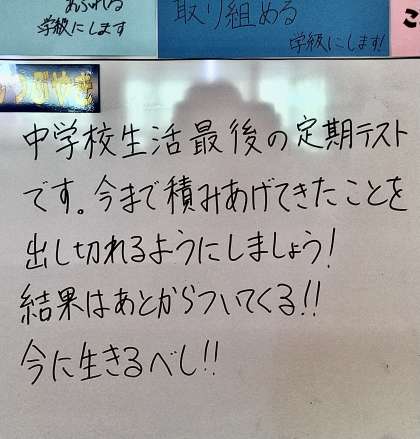 あふれる
学級にします
取り組める
学級にします!
こ
中学校生活最後の定期テスト
です。今まで積みあげてきたことを
出し切れるようにしましょう!
結果はあとからついてくる!!
今に生きるべし!!